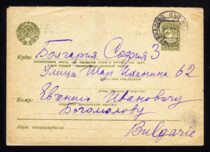 Куда: Болгария София 3
Улица Шар Планина 62
Кому: Евгению Ивановичу
Богомолову
Bulgarie